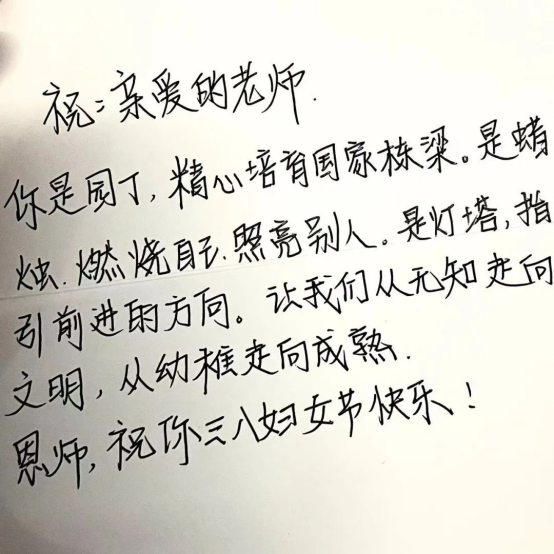 祝:亲爱的老师.
你是园丁,精心培育国家栋梁。是蜡
烛.燃烧自己.照亮别人。是灯塔,指
引前进的方向。让我们从无知走向
文明,从幼稚走向成熟.
恩师,祝你三八妇女节快乐!